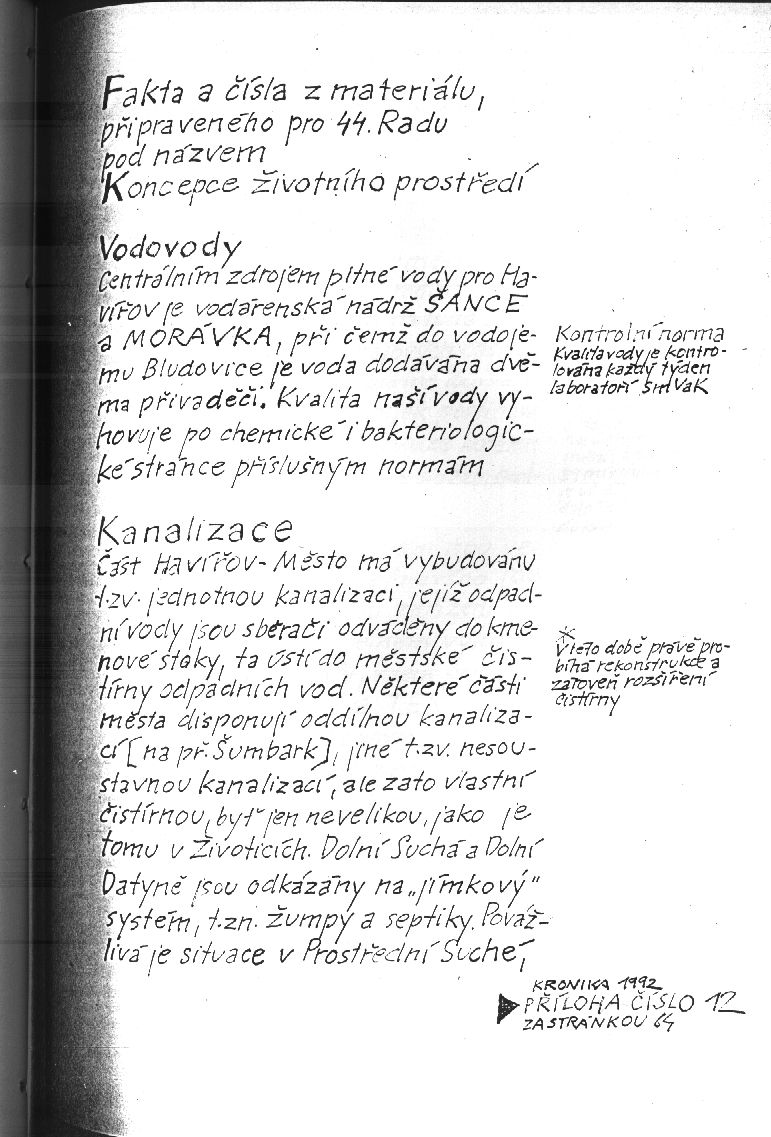 Fakta a čísla z materiálu,
připraveného pro 44. Radu
pod názvem
Koncepce životního prostředí
Vodovody
Centrálním zdrojem pitné vody pro Ha-
vířov je vodárenská nádrž ŠANCE
a MORÁVKA, při čemž do vodoje-
mu Bludovice je voda dodávána dvě-
ma přivaděči. Kvalita naší vody vy-
hovuje po chemické i bakteriologic-
ké stránce příslušným normám
Kontrolní norma
Kvalita vody je kontro-
lována každý týden
laboratoří SmVaK
Kanalizace
Část Havířov-Město má vybudovánu
t.zv. jednotnou kanalizaci, jejíž odpad-
ní vody jsou sběrači odváděny do kme-
nové stoky, ta ústí do městské čis-
tírny odpadních vod. Některé části
města disponují oddílnou kanaliza-
cí [na př. Šumbark], jiné t.zv. nesou-
stavnou kanalizací, ale zato vlastní
čistírnou, byť jen nevelikou, jako je
tomu v Životicích. Dolní Suchá a Dolní
Datyně jsou odkázány na „jímkový"
systém, t.zn. žumpy a septiky. Považ-
livá je situace v Prostřední Suché,
*
V této době právě pro-
bíhá rekonstrukce a
zároveň rozšíření
čistírny
KRONIKA 1992
PŘÍLOHA ČÍSLO 12
ZA STRÁNKOU 64